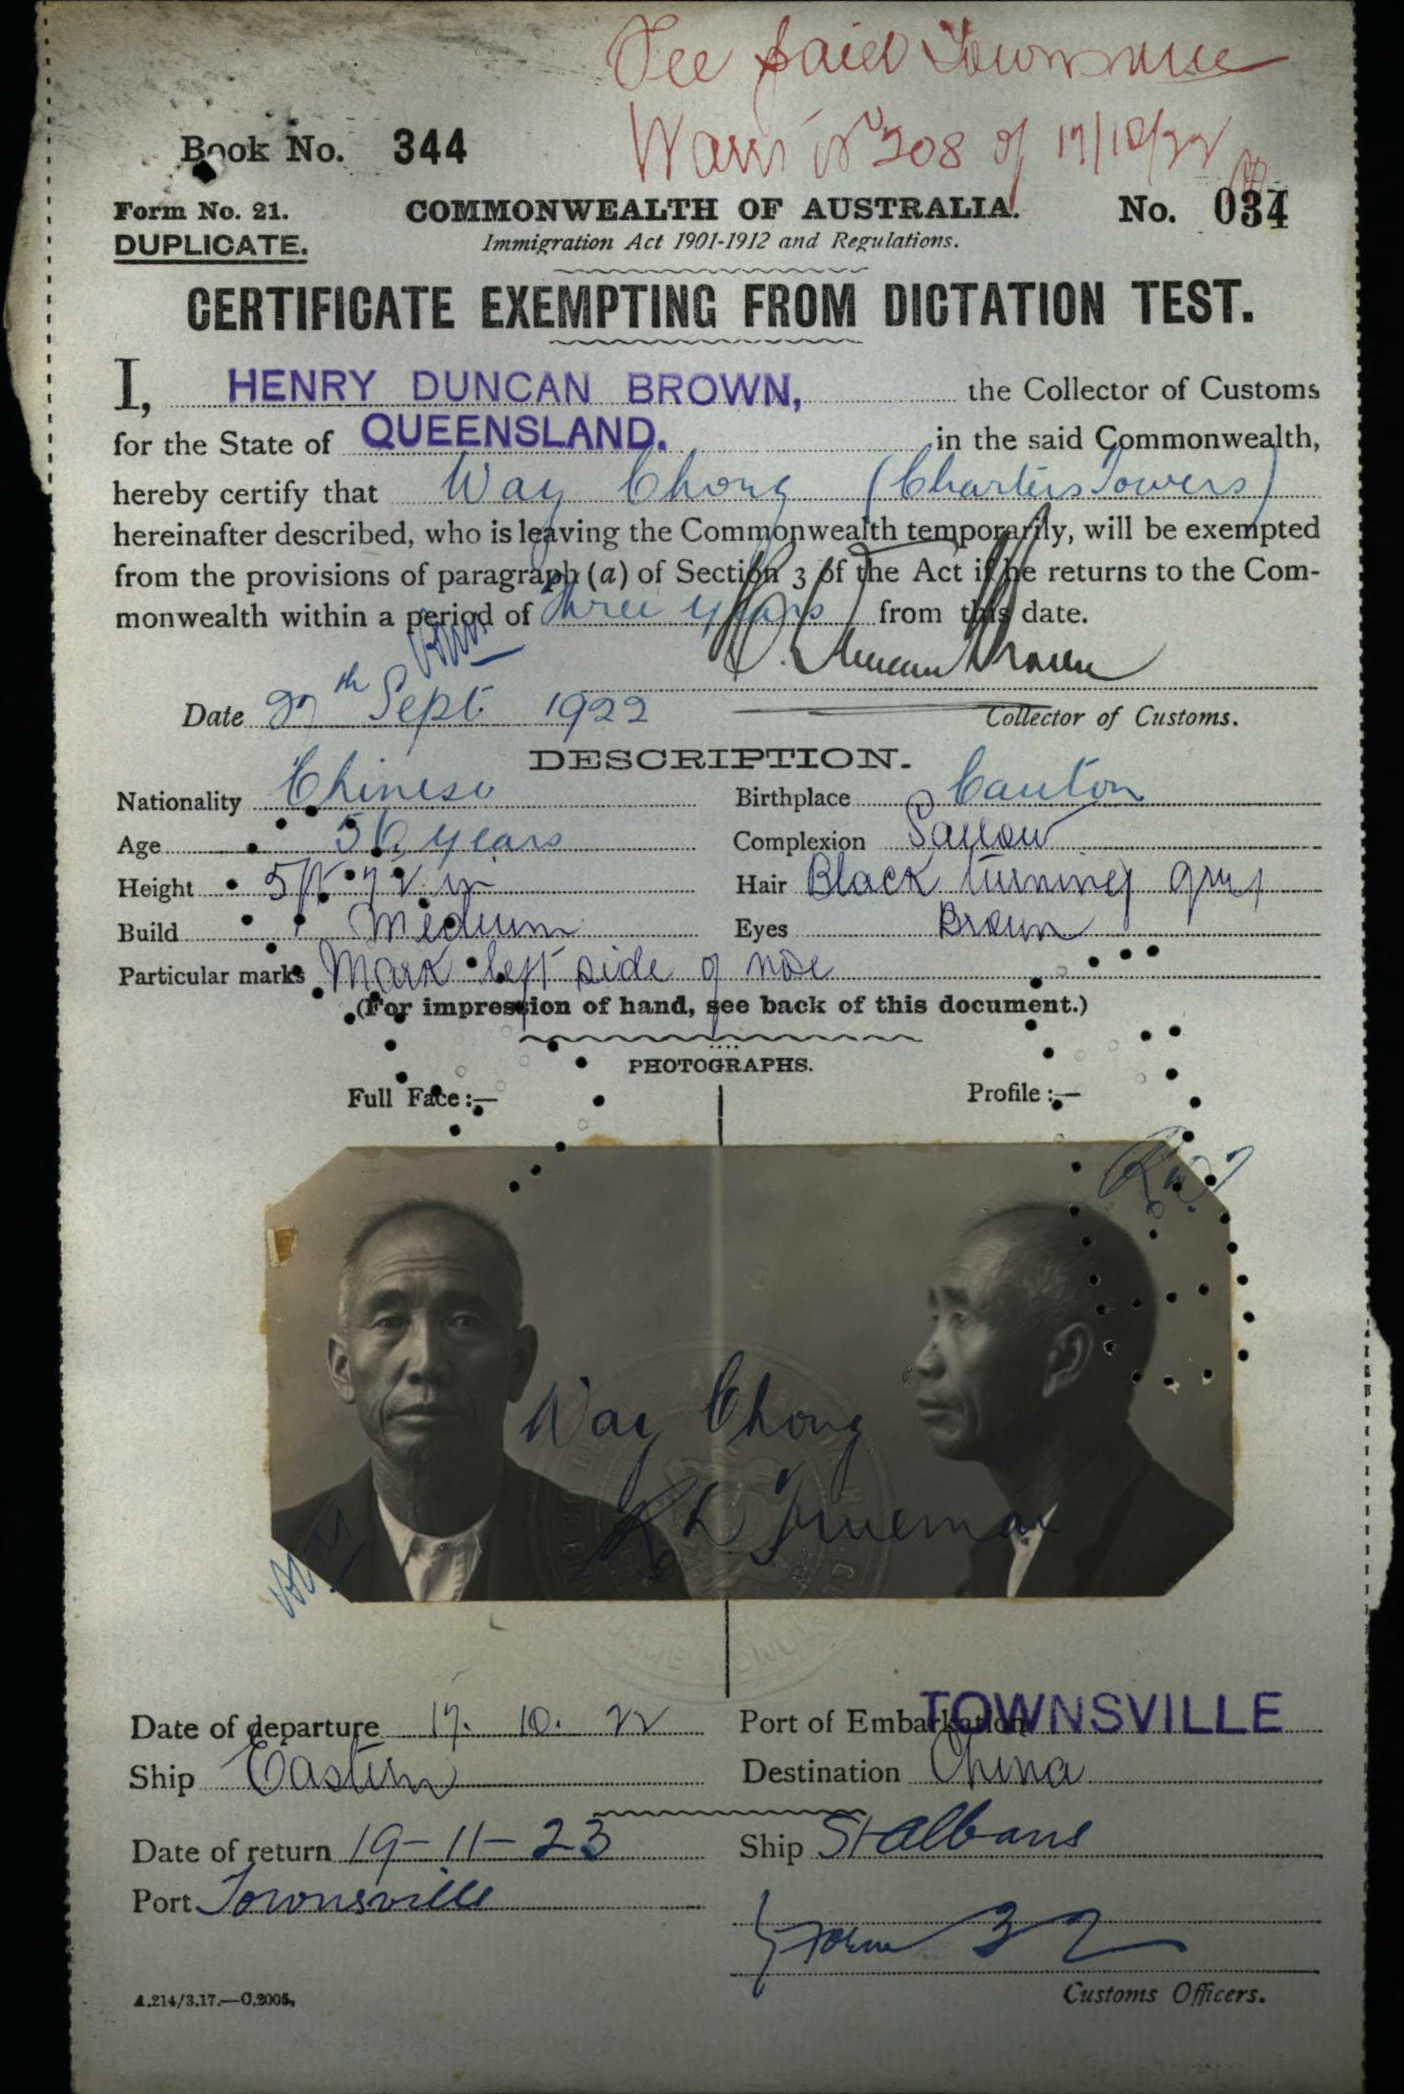 Fee paid Townsville
Warr't No 208 of 17/10/22
Book No. 344
Form No. 21.
COMMONWEALTH OF AUSTRALIA.
No. 034
DUPLICATE.
Immigration Act 1901-1912 and Regulations.
CERTIFICATE EXEMPTING FROM DICTATION TEST.
I, HENRY DUNCAN BROWN, the Collector of Customs
for the State of QUEENSLAND. in the said Commonwealth,
hereby certify that Way Chong (Charters Towers)
hereinafter described, who is leaving the Commonwealth temporarily, will be exempted
from the provisions of paragraph (a) of Section 3 of the Act if he returns to the Com-
monwealth within a period of three years from this date.
H. Duncan Brown
Date 27th Sept 1922
Collector of Customs.
DESCRIPTION.
Nationality Chinese Birthplace Canton
Age 56 years Complexion Sallow
Height 5ft 7½ in Hair Black turning grey
Build Medium Eyes Brown
Particular marks Mark left side of nose
(For impression of hand, see back of this document.)
PHOTOGRAPHS.
Full Face :— Profile :—
Way Chong
Trueman
Date of departure 17. 10. 22 Port of Embarkation TOWNSVILLE
Ship Eastern Destination China
Date of return 19-11-23 Ship St Albans
Port Townsville
Form 32
Customs Officers.
A.214/3.17.—C.2005.